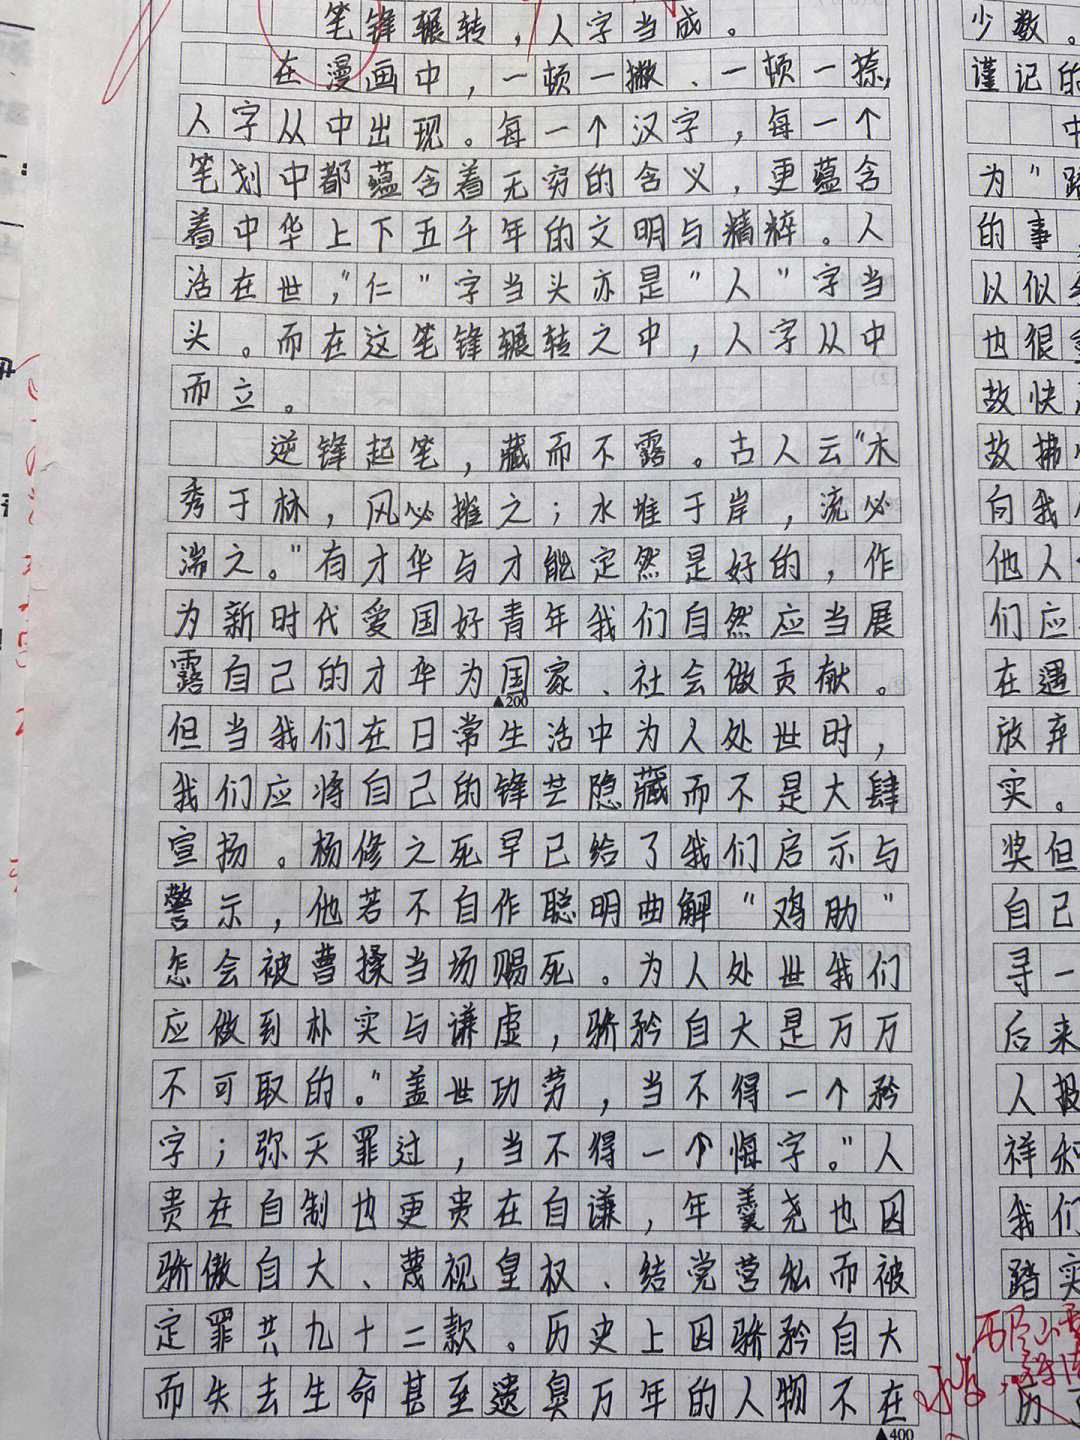 笔锋辗转，人字当成。
在漫画中，一顿一撇、一顿一捺，
人字从中出现。每一个汉字，每一个
笔划中都蕴含着无穷的含义，更蕴含
着中华上下五千年的文明与精粹。人
活在世，“仁”字当头亦是“人”字当
头。而在这笔锋辗转之中，人字从中
而立。
逆锋起笔，藏而不露。古人云“木
秀于林，风必摧之；水堆于岸，流必
湍之。”有才华与才能定然是好的，作
为新时代爱国好青年我们自然应当展
露自己的才华为国家、社会做贡献。
▲200
但当我们在日常生活中为人处世时，
我们应将自己的锋芒隐藏而不是大肆
宣扬。杨修之死早已给了我们启示与
警示，他若不自作聪明曲解“鸡肋”
怎会被曹操当场赐死。为人处世我们
应做到朴实与谦虚，骄矜自大是万万
不可取的。“盖世功劳，当不得一个矜
字；弥天罪过，当不得一个悔字。”人
贵在自制也更贵在自谦，年羹尧也因
骄傲自大、蔑视皇权、结党营私而被
定罪共九十二款。历史上因骄矜自大
而失去生命甚至遗臭万年的人物不在
▲400
少数。
谨记的
中
为“踏
的事
以似
也很
故快
故拂
向我
他人
们应
在遇
放弃
实。
奖但
自己
寻一
后来
人报
祥和
我们
踏实
历